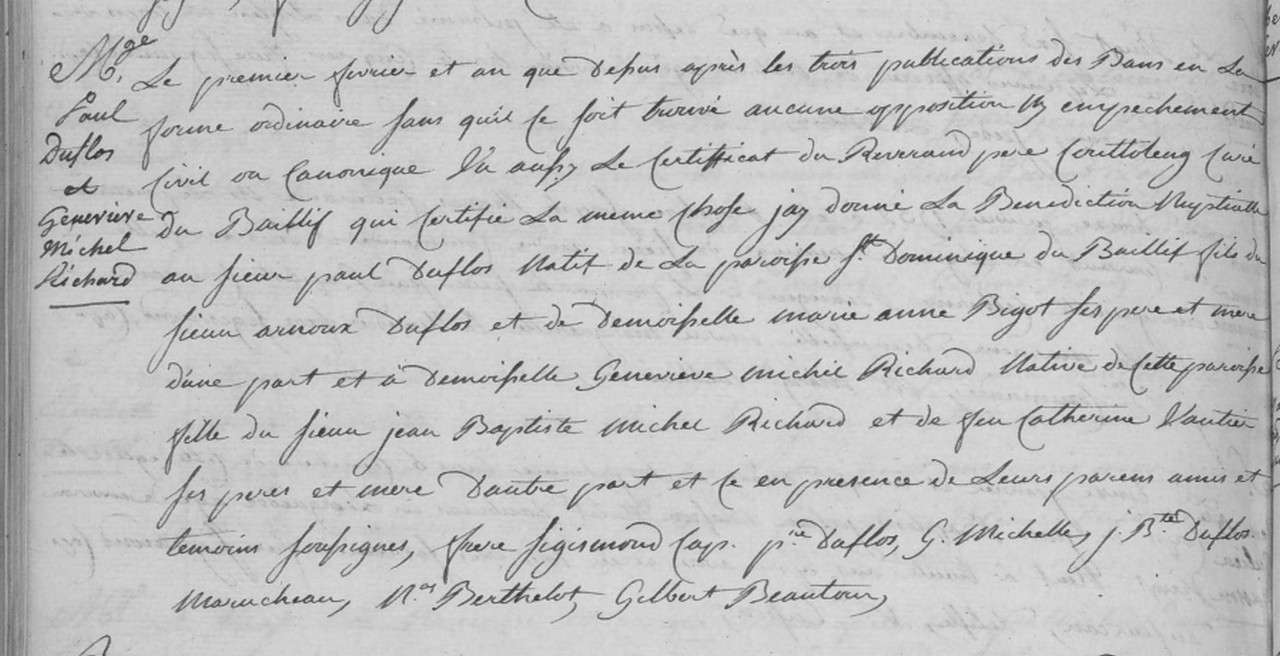 M.ge
Paul
Duflos
et
Genevieve
Michel
Richard
Le premier fevrier et an que Defus après les trois publications des Bans en La
forme ordinaire sans qu'il se soit trouvé aucune opposition ny empechement
Civil ou Canonique Vu aussy Le Certifficat du Reverand pere Curé
du Baillif qui Certifie La meme chose jay donné La Benediction Nuptialle
au sieur paul Duflos Natif de La paroisse St. Dominique du Baillif fils du
sieur arnoux Duflos et de Demoisselle marie anne Bigot ses pere et mere
d'une part et à Demoisselle Genevieve michel Richard Native de Cette paroisse
fille du sieur jean Baptiste Michel Richard et de feu Catherine Vautier
ses peres et mere D'autre part et ce en presence de Leurs parens amis et
temoins soussignes, frere Sigismond Cap. pre. Duflos, G. Michelle, j. Bte. Duflos
Marucheau, Nas. Berthelot, Gilbert Beautour,